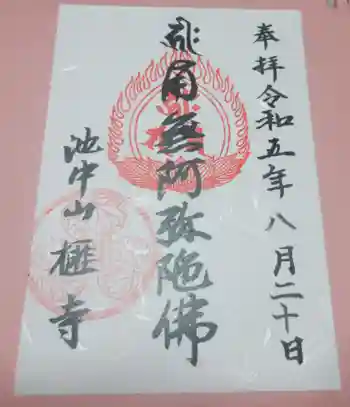 奉拝令和五年八月二十日
南無阿弥陀佛
池中山榧寺